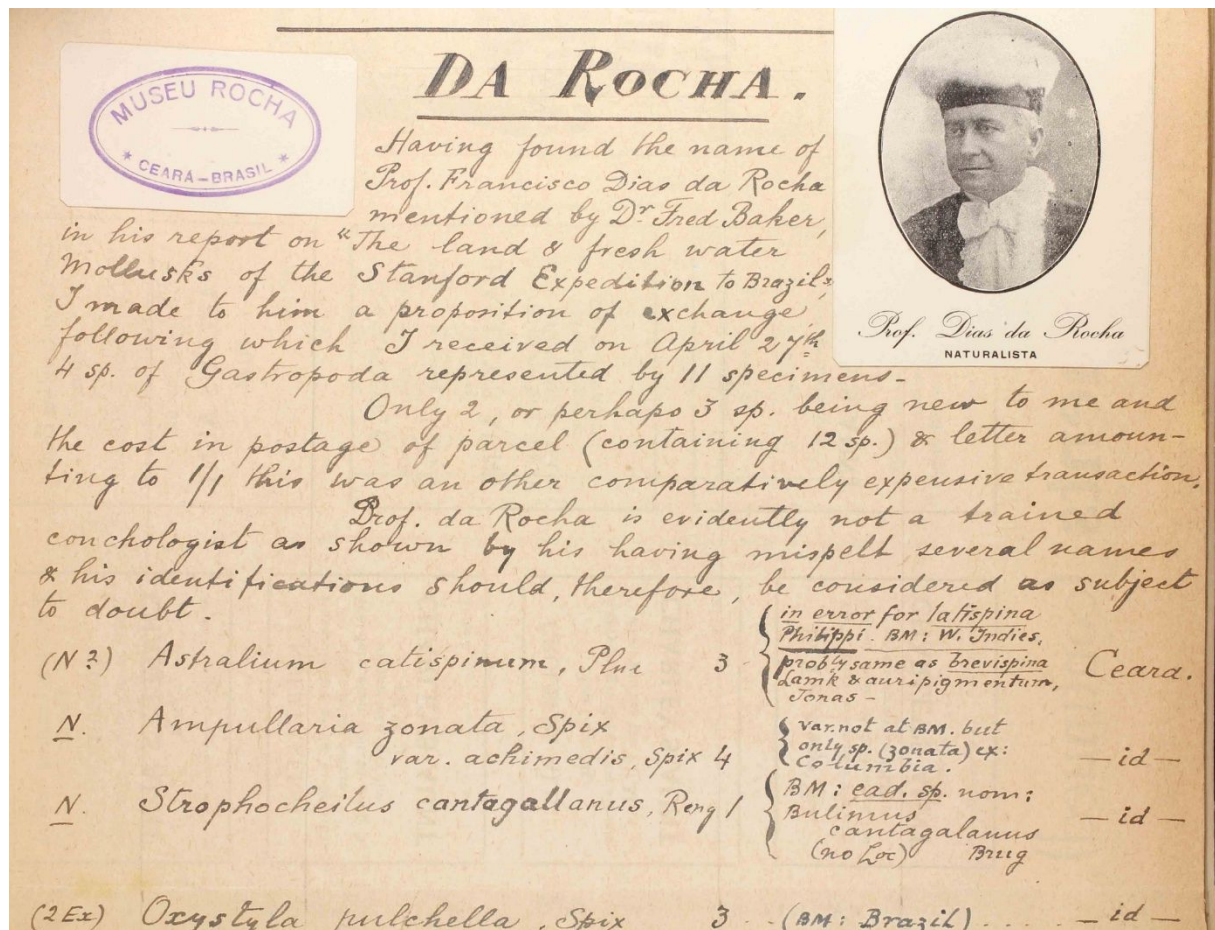 DA ROCHA.
MUSEU ROCHA
* CEARÁ-BRASIL *
Prof. Dias da Rocha
NATURALISTA
Having found the name of
Prof. Francisco Dias da Rocha
mentioned by Dr Fred Baker,
in his report on "The land & fresh water
Mollusks of the Stanford Expedition to Brazil",
I made to him a proposition of exchange
following which I received on April 27th
4 sp. of Gastropoda represented by 11 specimens-
Only 2, or perhaps 3 sp. being new to me and
the cost in postage of parcel (containing 12 sp.) & letter amoun-
ting to 1/1 this was an other comparatively expensive transaction.
Prof. da Rocha is evidently not a trained
conchologist as shown by his having mispelt several names
& his identifications should, therefore, be considered as subject
to doubt.
(N?) Astralium catispinum, 3 { in error for latispina
Philippi. BM: W. Indies,
probly same as brevispina
Lamk & auripigmentum,
Jonas- Ceara.
N. Ampullaria zonata, Spix
var. achimedis, Spix 4 { var. not at BM. but
only sp. (zonata) ex:
Columbia. - id -
N. Strophocheilus cantagallanus, Reng 1 { BM: ead. sp. nom:
Bulimus
cantagalanus
(no Loc) Brug - id -
(2 Ex) Oxystyla pulchella, Spix 3 . . (BM: Brazil) . . . . - id -